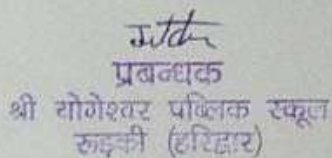 प्रबन्धक
श्री योगेश्वर पब्लिक स्कूल
रूड़की (हरिद्वार)